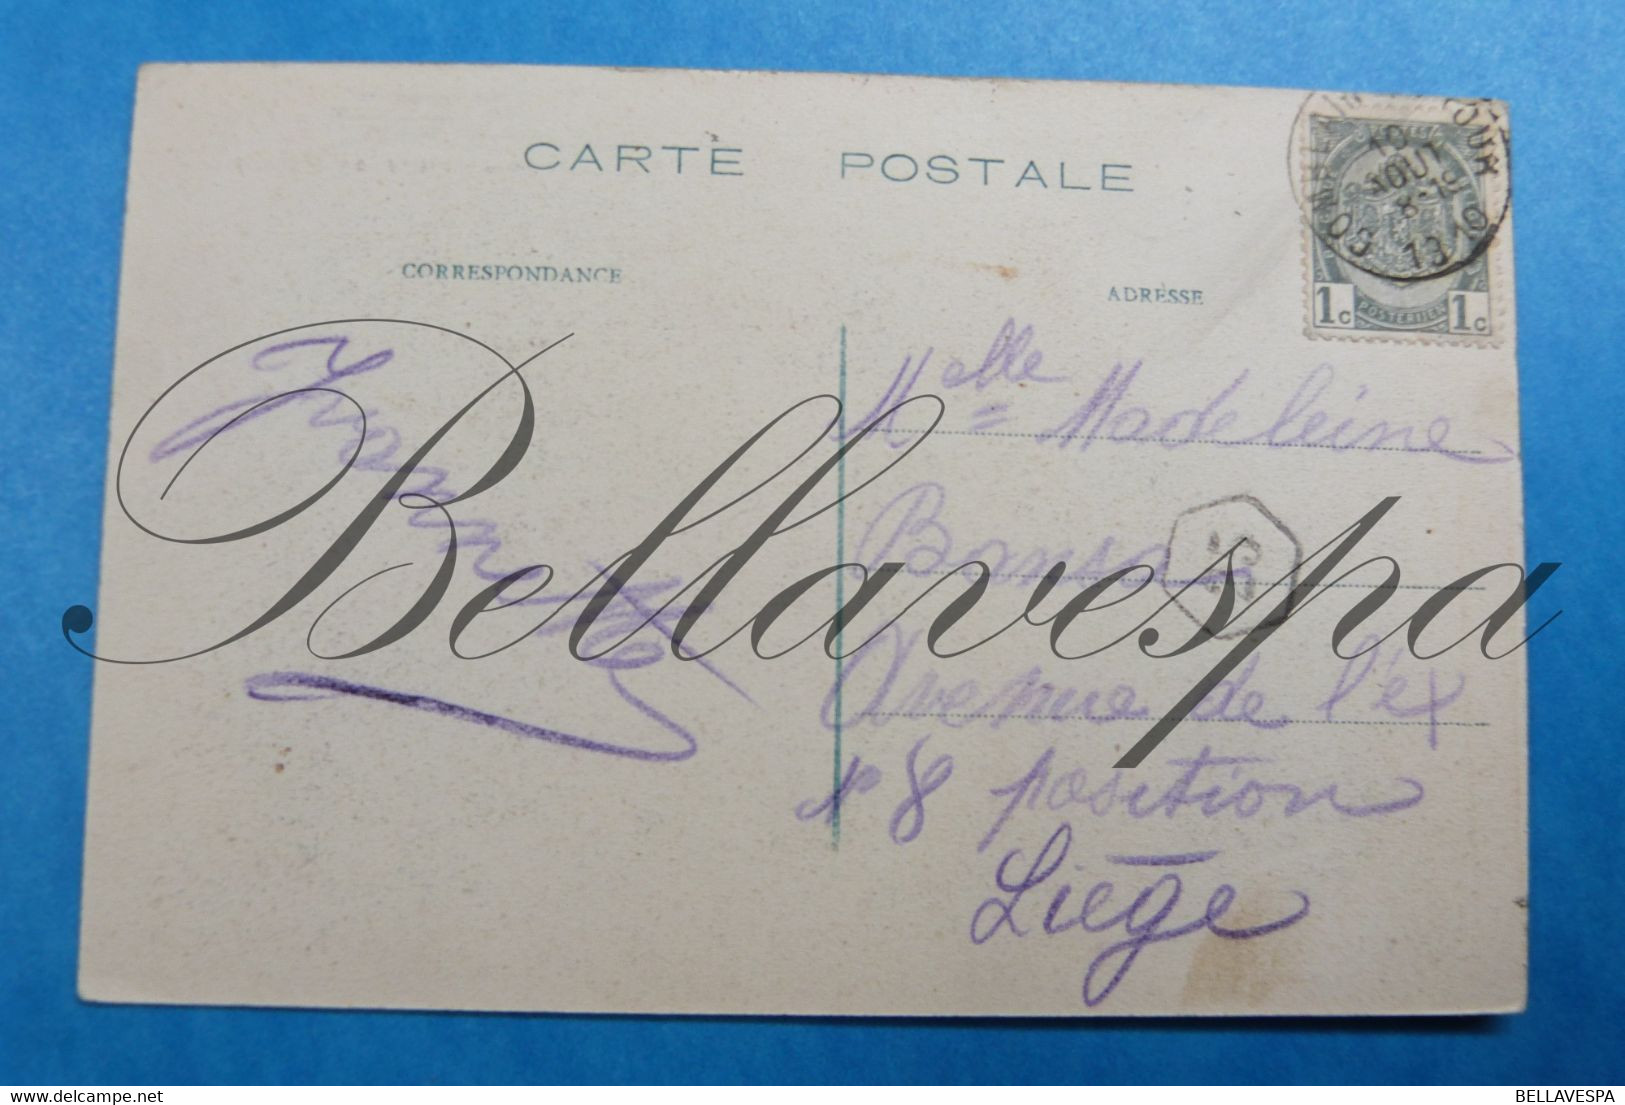 CARTE POSTALE
CORRESPONDANCE
ADRESSE
10
AOUT
8-19
1910
1c POSTERIJEN 1c
Melle = Madeleine
Avenue de l'ex
n 8 position
Liège
Jeannette
Bellavespa
delcampe.net
BELLAVESPA